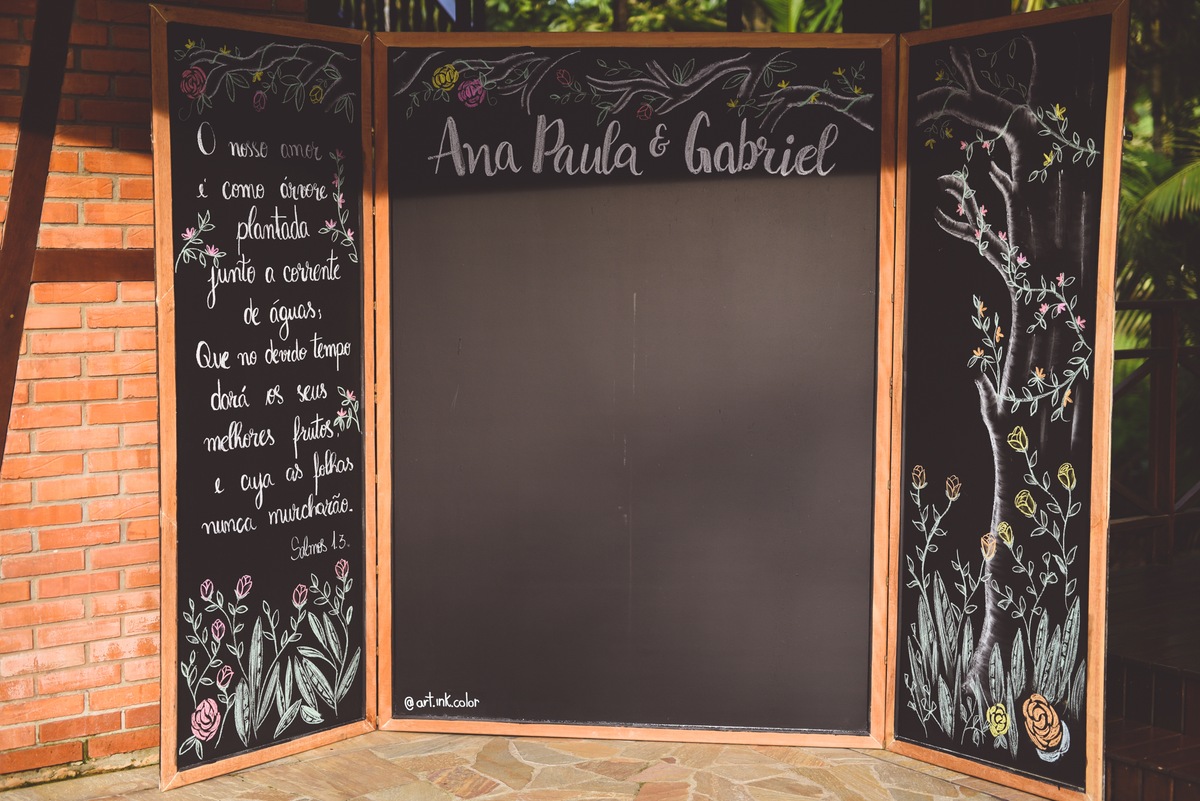 O nosso amor
é como árvore
plantada
junto a corrente
de águas;
Que no devido tempo
dará os seus
melhores frutos,
e cuja as folhas
nunca murcharão.
Salmos 1.3.
Ana Paula & Gabriel
@art.ink.color